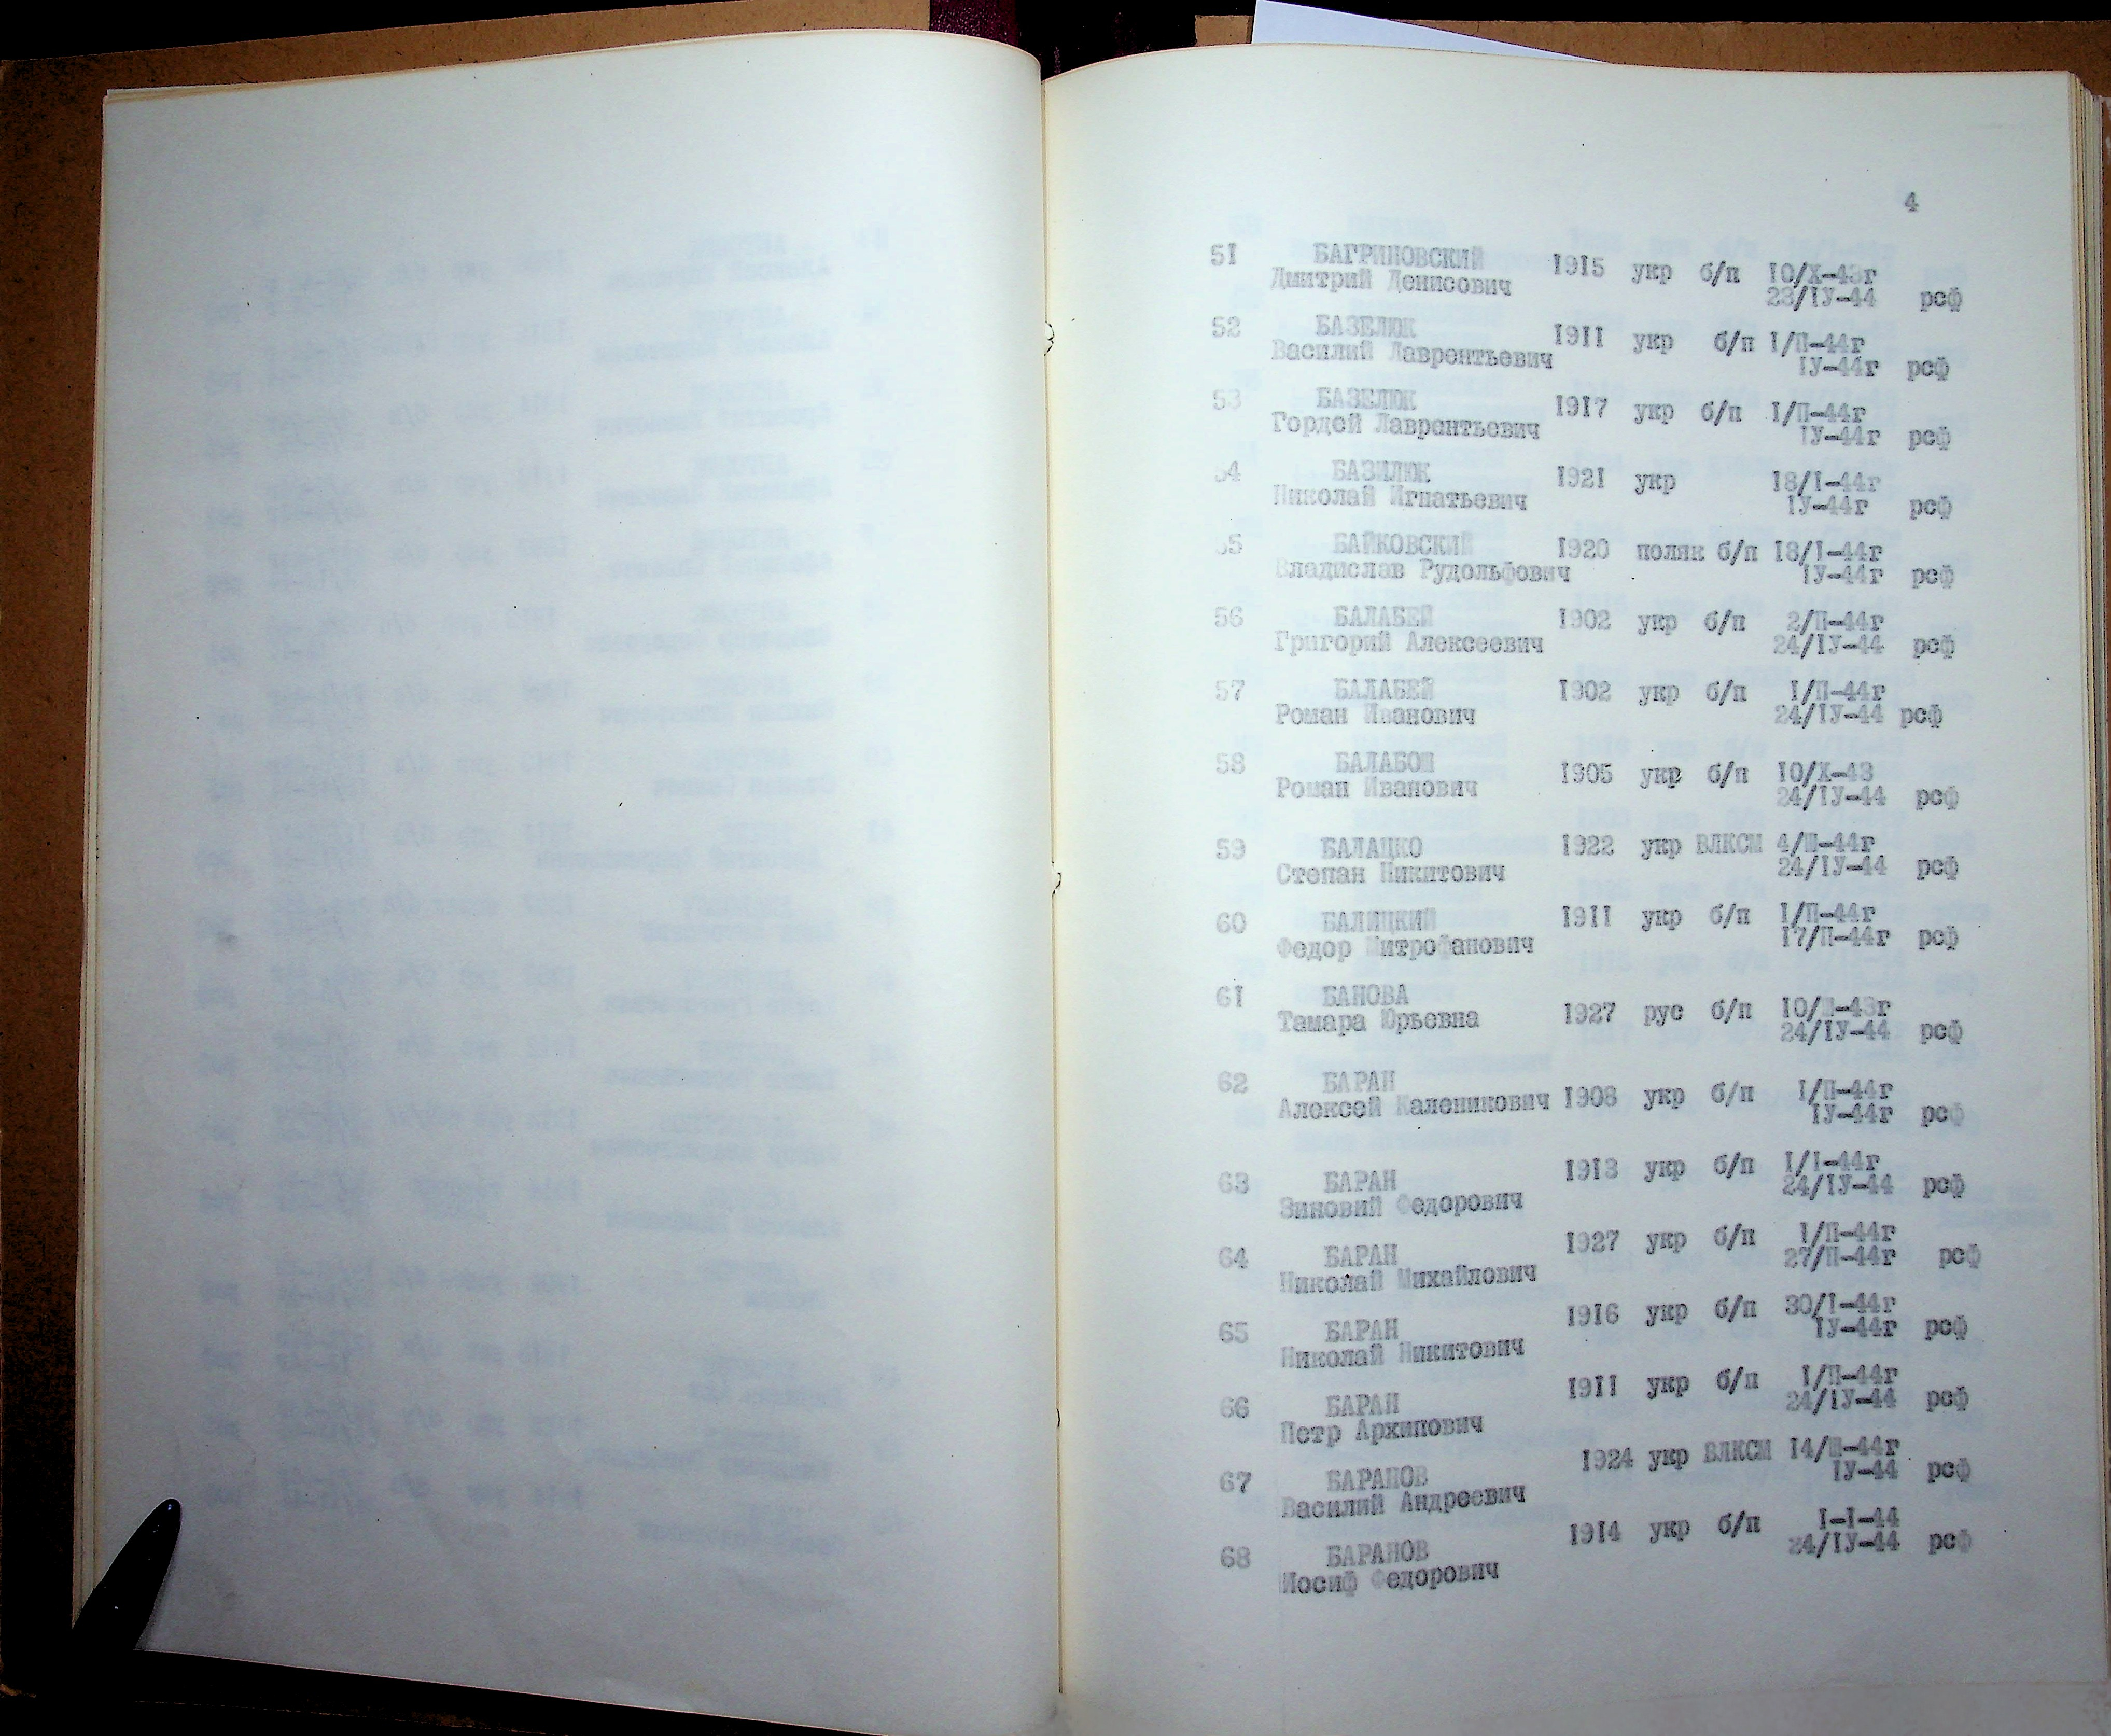 4
51 БАГРИНОВСКИЙ 1915 укр б/п 10/Х-43г
Дмитрий Денисович 23/IУ-44 рсф
52 БАЗЕЛЮК 1911 укр б/п I/П-44г
Василий Лаврентьевич IУ-44г рсф
53 БАЗЕЛЮК 1917 укр б/п I/П-44г
Гордей Лаврентьевич IУ-44г рсф
54 БАЗИЛЮК 1921 укр 18/I-44г
Николай Игнатьевич IУ-44г рсф
55 БАЙКОВСКИЙ 1920 поляк б/п 18/I-44г
Владислав Рудольфович IУ-44г рсф
56 БАЛАБЕЙ 1902 укр б/п 2/П-44г
Григорий Алексеевич 24/IУ-44 рсф
57 БАЛАБЕЙ 1902 укр б/п I/П-44г
Роман Иванович 24/IУ-44 рсф
58 БАЛАБОН 1905 укр б/п 10/Х-43
Роман Иванович 24/IУ-44 рсф
59 БАЛАЦКО 1922 укр ВЛКСМ 4/Ш-44г
Степан Никитович 24/IУ-44 рсф
60 БАЛИЦКИЙ 1911 укр б/п I/П-44г
Федор Митрофанович 17/П-44г рсф
61 БАНОВА 1927 рус б/п 10/Ш-43г
Тамара Юрьевна 24/IУ-44 рсф
62 БАРАН 1908 укр б/п I/П-44г
Алексей Каленикович IУ-44г рсф
63 БАРАН 1913 укр б/п I/I-44г
Зиновий Федорович 24/IУ-44 рсф
64 БАРАН 1927 укр б/п I/П-44г
Николай Михайлович 27/П-44г рсф
65 БАРАН 1916 укр б/п 30/I-44г
Николай Никитович IУ-44г рсф
66 БАРАН 1911 укр б/п I/П-44г
Петр Архипович 24/IУ-44 рсф
67 БАРАНОВ 1924 укр ВЛКСМ 14/Ш-44г
Василий Андреевич IУ-44 рсф
68 БАРАНОВ 1914 укр б/п I-I-44
Иосиф Федорович 24/IУ-44 рсф